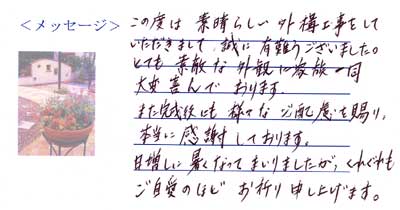 ＜メッセージ＞
この度は 素晴らしい外構工事をして
いただきまして、誠に有難うございました。
とても 素敵な外観に家族一同
大変喜んでおります。
また完成後にも 様々なご配慮を賜り、
本当に感謝しております。
日増しに暑くなってまいりましたが、くれぐれも
ご自愛のほど お祈り申し上げます。